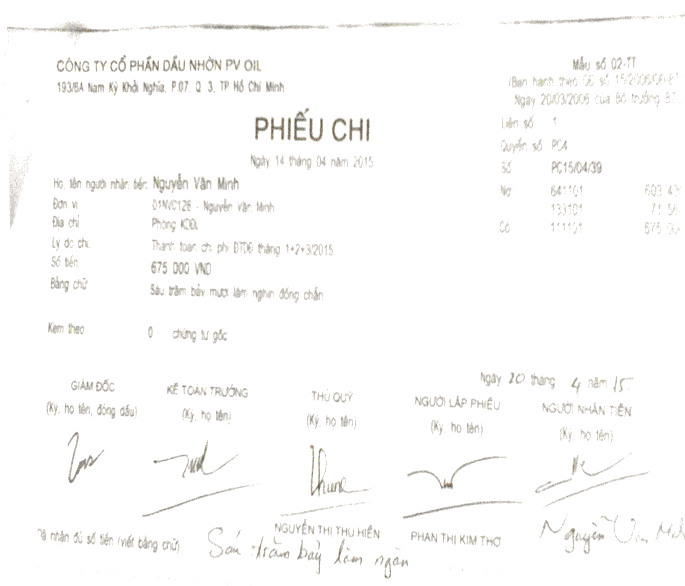 CÔNG TY CỔ PHẦN DẦU NHỜN PV OIL
193/6A Nam Kỳ Khởi Nghĩa, P.07 Q 3, TP Hồ Chí Minh
Mẫu số 02-TT
(Ban hành theo QĐ số 15/2006/QĐ-BT
Ngày 20/03/2006 của Bộ trưởng BT
PHIẾU CHI
Ngày 14 tháng 04 năm 2015
Liên số 1
Quyển số PC4
Số PC15/04/39
Nợ 641101 603 43
133101 71 56
Có 111101 675 00
Họ, tên người nhận tiền Nguyễn Văn Minh
Đơn vị 01NVC126 - Nguyễn Văn Minh
Địa chỉ Phòng KDDL
Lý do chi Thanh toán chi phí ĐTDĐ tháng 1+2+3/2015
Số tiền 675 000 VND
Bằng chữ Sáu trăm bảy mươi lăm nghìn đồng chẵn
Kèm theo 0 chứng từ gốc
Ngày 20 tháng 4 năm 15
GIÁM ĐỐC KẾ TOÁN TRƯỞNG THỦ QUỸ NGƯỜI LẬP PHIẾU NGƯỜI NHẬN TIỀN
(Ký, họ tên, đóng dấu) (Ký, họ tên) (Ký, họ tên) (Ký, họ tên) (Ký, họ tên)
NGUYỄN THỊ THU HIỀN PHAN THỊ KIM THƠ Nguyễn Văn
Đã nhận đủ số tiền (viết bằng chữ) Sáu trăm bảy lăm ngàn